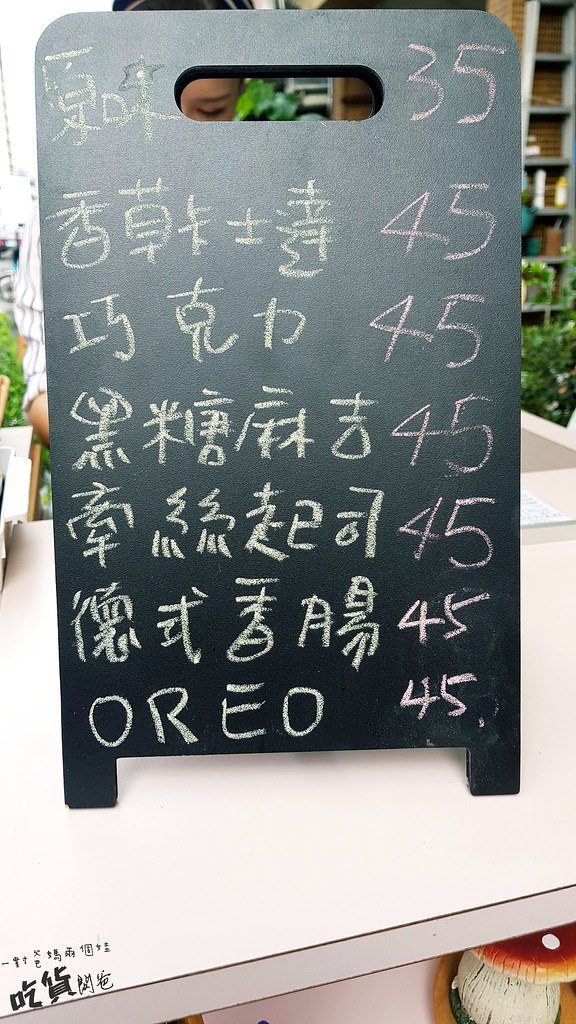 原味 35
香草卡士達 45
巧克力 45
黑糖麻吉 45
牽絲起司 45
德式香腸 45
OREO 45.
一對爸媽兩個娃
吃貨闆爸